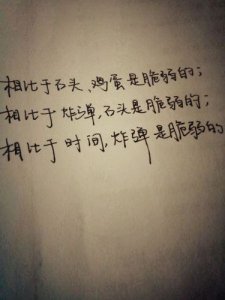 相比于石头、鸡蛋是脆弱的；
相比于炸弹,石头是脆弱的；
相比于时间,炸弹是脆弱的